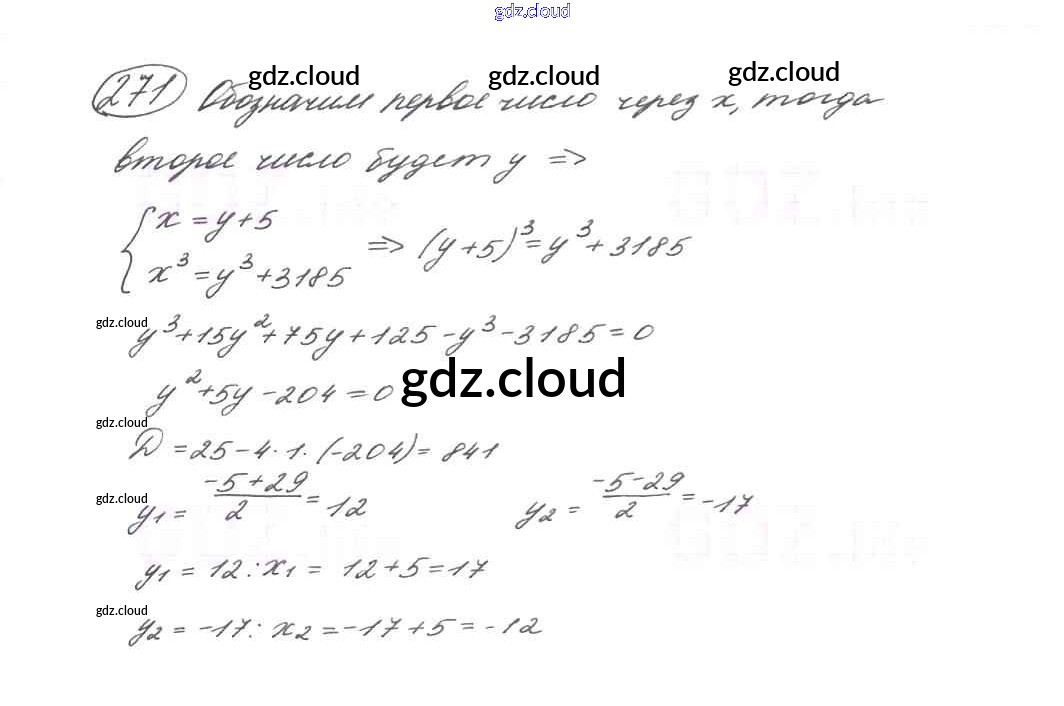 gdz.cloud
gdz.cloud gdz.cloud gdz.cloud
271 Обозначим первое число через x, тогда
второе число будет y =>
{ x = y + 5
x³ = y³ + 3185 => (y + 5)³ = y³ + 3185
gdz.cloud
y³ + 15y² + 75y + 125 - y³ - 3185 = 0
y² + 5y - 204 = 0
gdz.cloud
gdz.cloud
D = 25 - 4 · 1 · (-204) = 841
gdz.cloud
y₁ = (-5 + 29)/2 = 12 y₂ = (-5 - 29)/2 = -17
y₁ = 12: x₁ = 12 + 5 = 17
gdz.cloud
y₂ = -17: x₂ = -17 + 5 = -12